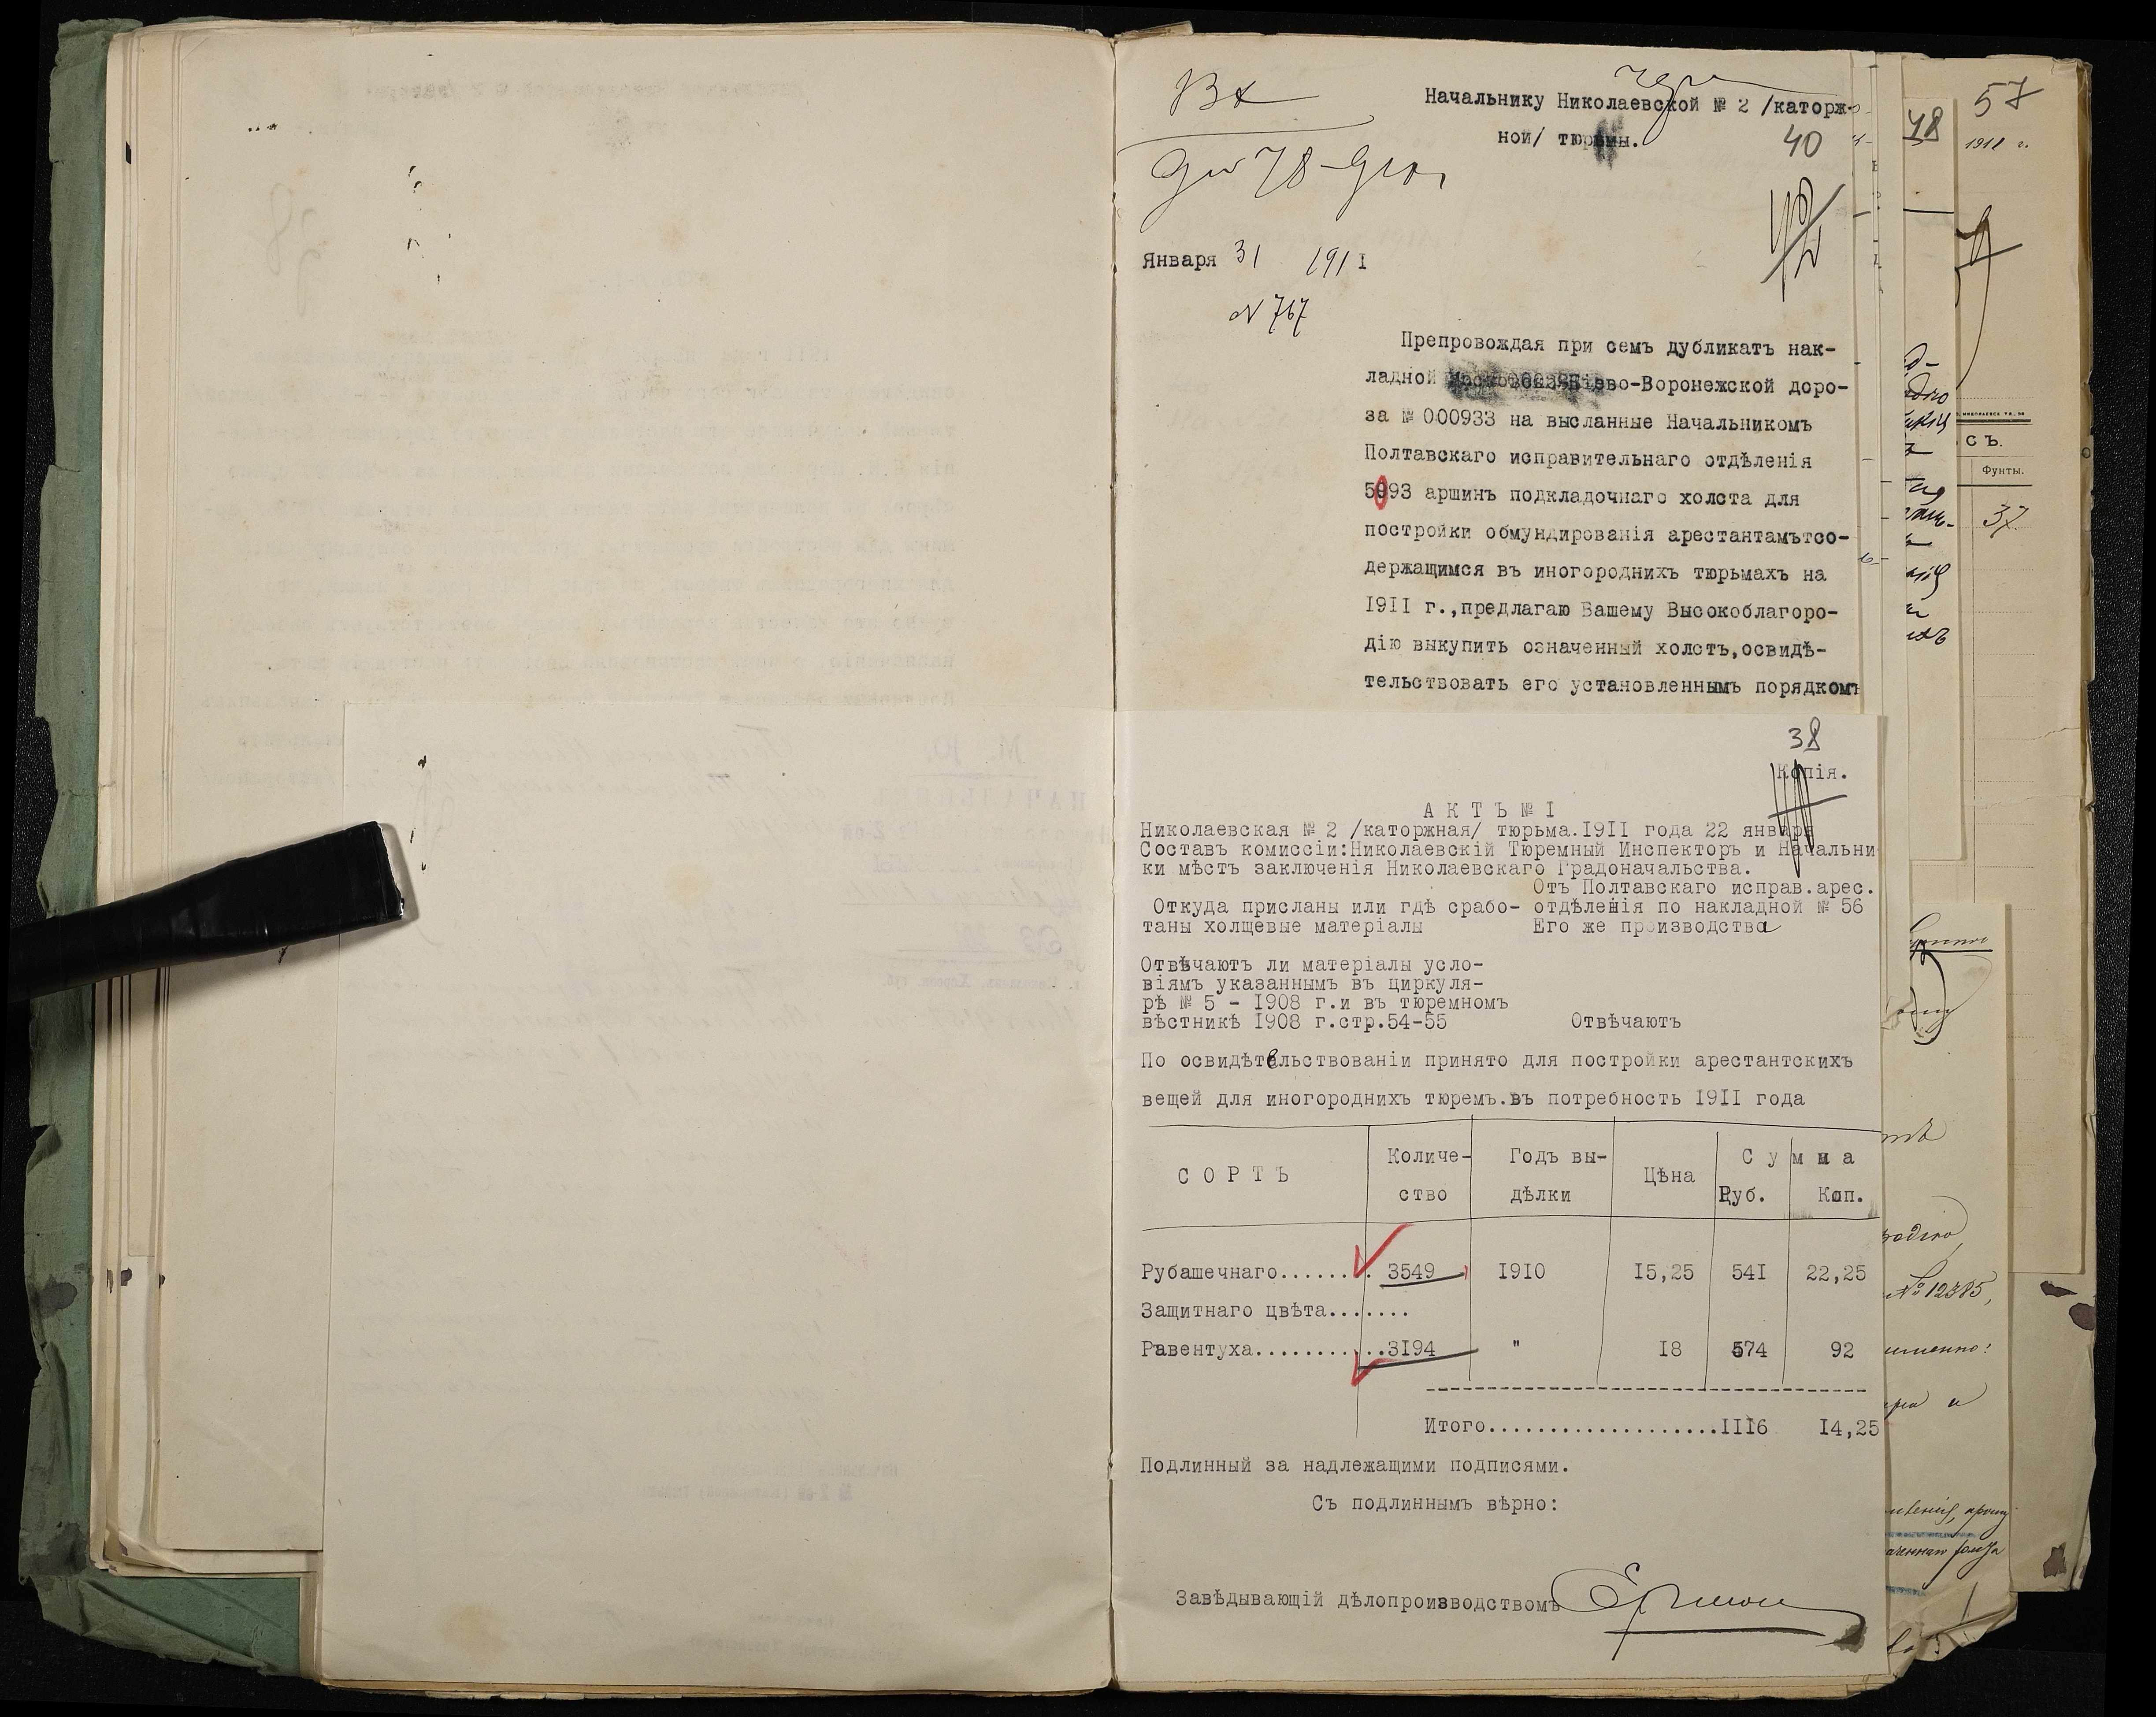 Вх
Начальнику Николаевской № 2 /каторж-
ной/ тюрьмы.
40
Января 31 1911
N 767
Препровождая при семъ дубликатъ нак-
ладной Кіево-Воронежской доро-
за № 000933 на высланные Начальникомъ
Полтавскаго исправительнаго отдѣленія
5993 аршинъ подкладочнаго холста для
постройки обмундированія арестантамътсо-
держащимся въ иногороднихъ тюрьмахъ на
1911 г.,предлагаю Вашему Высокоблагоро-
дію выкупить означенный холстъ,освидѣ-
тельствовать его установленнымъ порядкомъ
38
Копія.
АКТЪ № I
Николаевская № 2 /каторжная/ тюрьма.1911 года 22 января
Составъ комиссіи:Николаевскій Тюремный Инспекторъ и Начальни
ки мѣстъ заключенія Николаевскаго Градоначальства.
Отъ Полтавскаго исправ.арес.
Откуда присланы или гдѣ срабо- отдѣленія по накладной № 56
таны холщевые матеріалы Его же производства
Отвѣчаютъ ли матеріалы усло-
віямъ указаннымъ въ циркуля-
рѣ № 5 - 1908 г.и въ тюремномъ
вѣстникѣ 1908 г.стр.54-55 Отвѣчаютъ
По освидѣтельствованіи принято для постройки арестантскихъ
вещей для иногороднихъ тюремъ.въ потребность 1911 года
СОРТЪ Количе- Годъ вы- Цѣна Сумма
ство дѣлки Руб. Коп.
Рубашечнаго........ 3549 1910 15,25 541 22,25
Защитнаго цвѣта.......
Равентуха............3194 " 18 574 92
Итого....................1116 14,25
Подлинный за надлежащими подписями.
Съ подлиннымъ вѣрно:
Завѣдывающій дѣлопроизводствомъ
48
57
1911 г.
СЪ.
Фунты.
37
№ 12385,
именно: